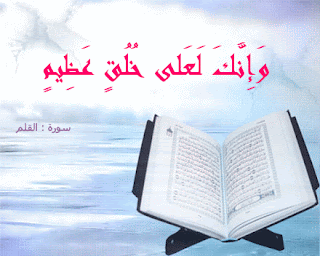 وَإِنَّكَ لَعَلى خُلُقٍ عَظِيمٍ
سورة : القلم